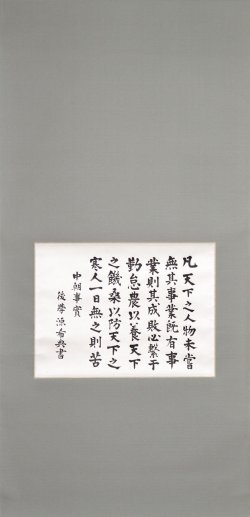 凡天下之人物未嘗
無其事業既有事
業則其成敗必繫于
勤怠農以養天下
之饑桑以防天下之
寒人一日無之則苦
中朝事實
後學源希典書